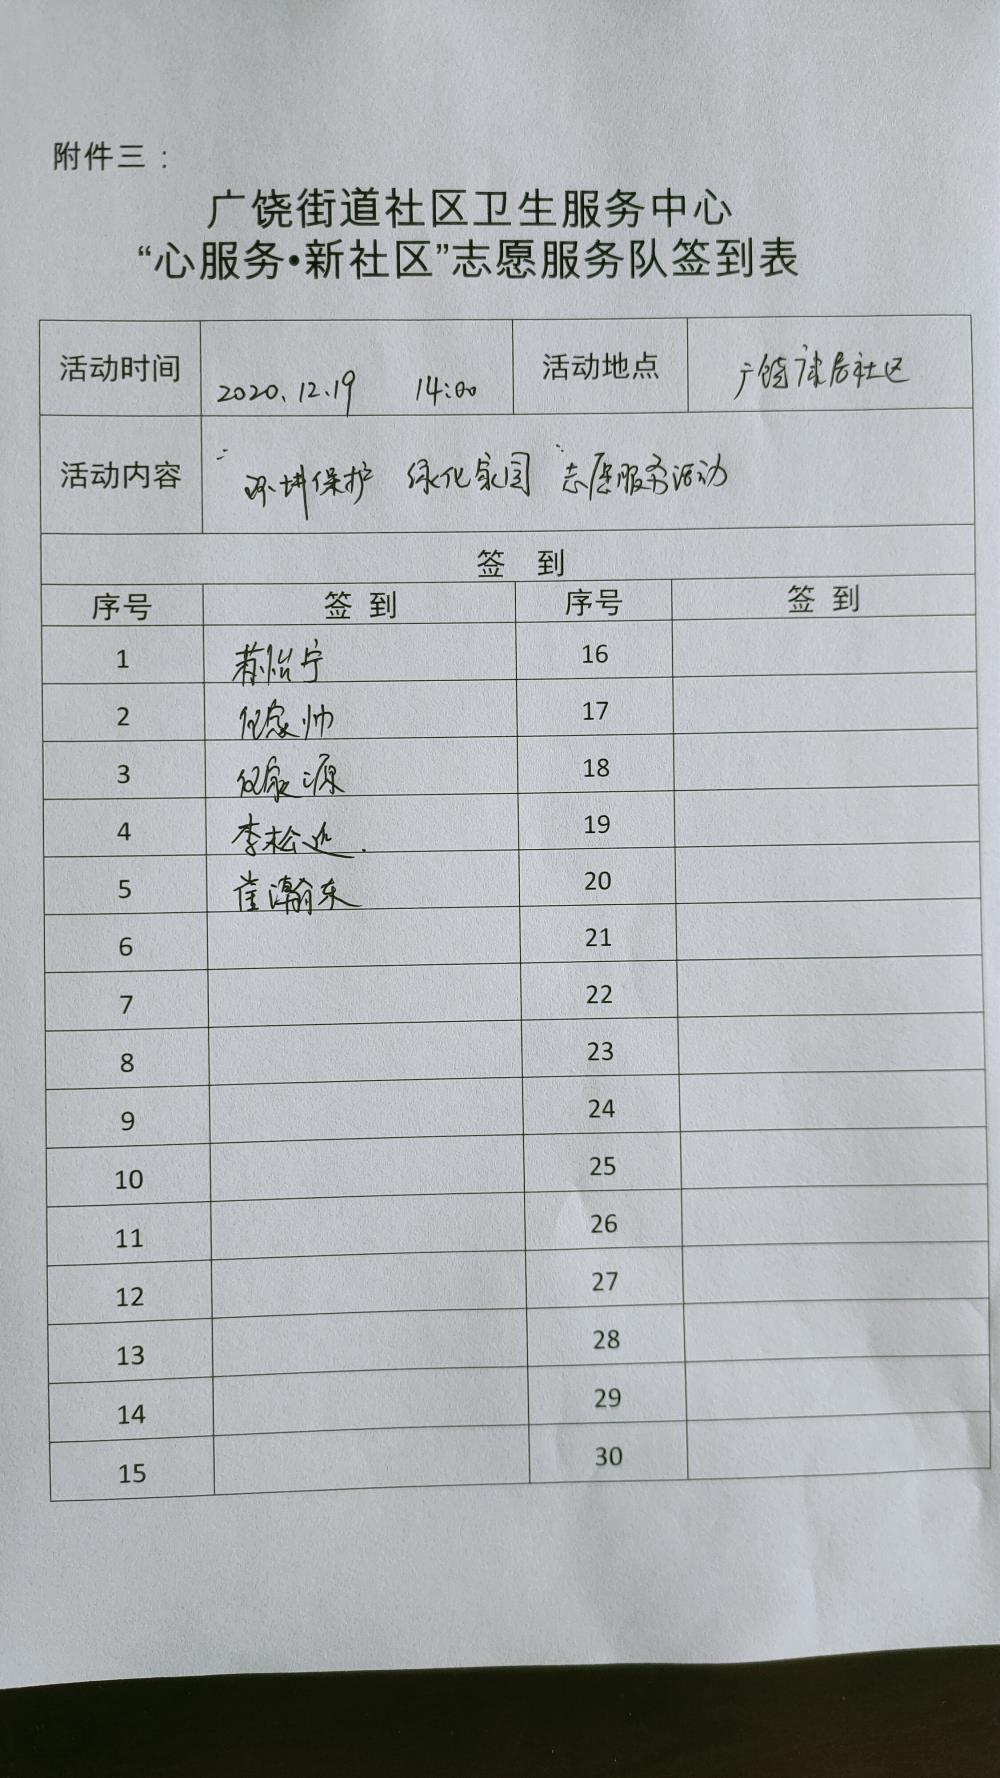 附件三：
广饶街道社区卫生服务中心
“心服务•新社区”志愿服务队签到表
活动时间 2020.12.19 14:00 活动地点 广饶 社区
活动内容 “环境保护 绿化家园”志愿服务活动
签 到
序号 签到 序号 签到
1 苏怡宁 16
2 家帅 17
3 家源 18
4 李松 19
5 崔瀚东 20
6 21
7 22
8 23
9 24
10 25
11 26
12 27
13 28
14 29
15 30